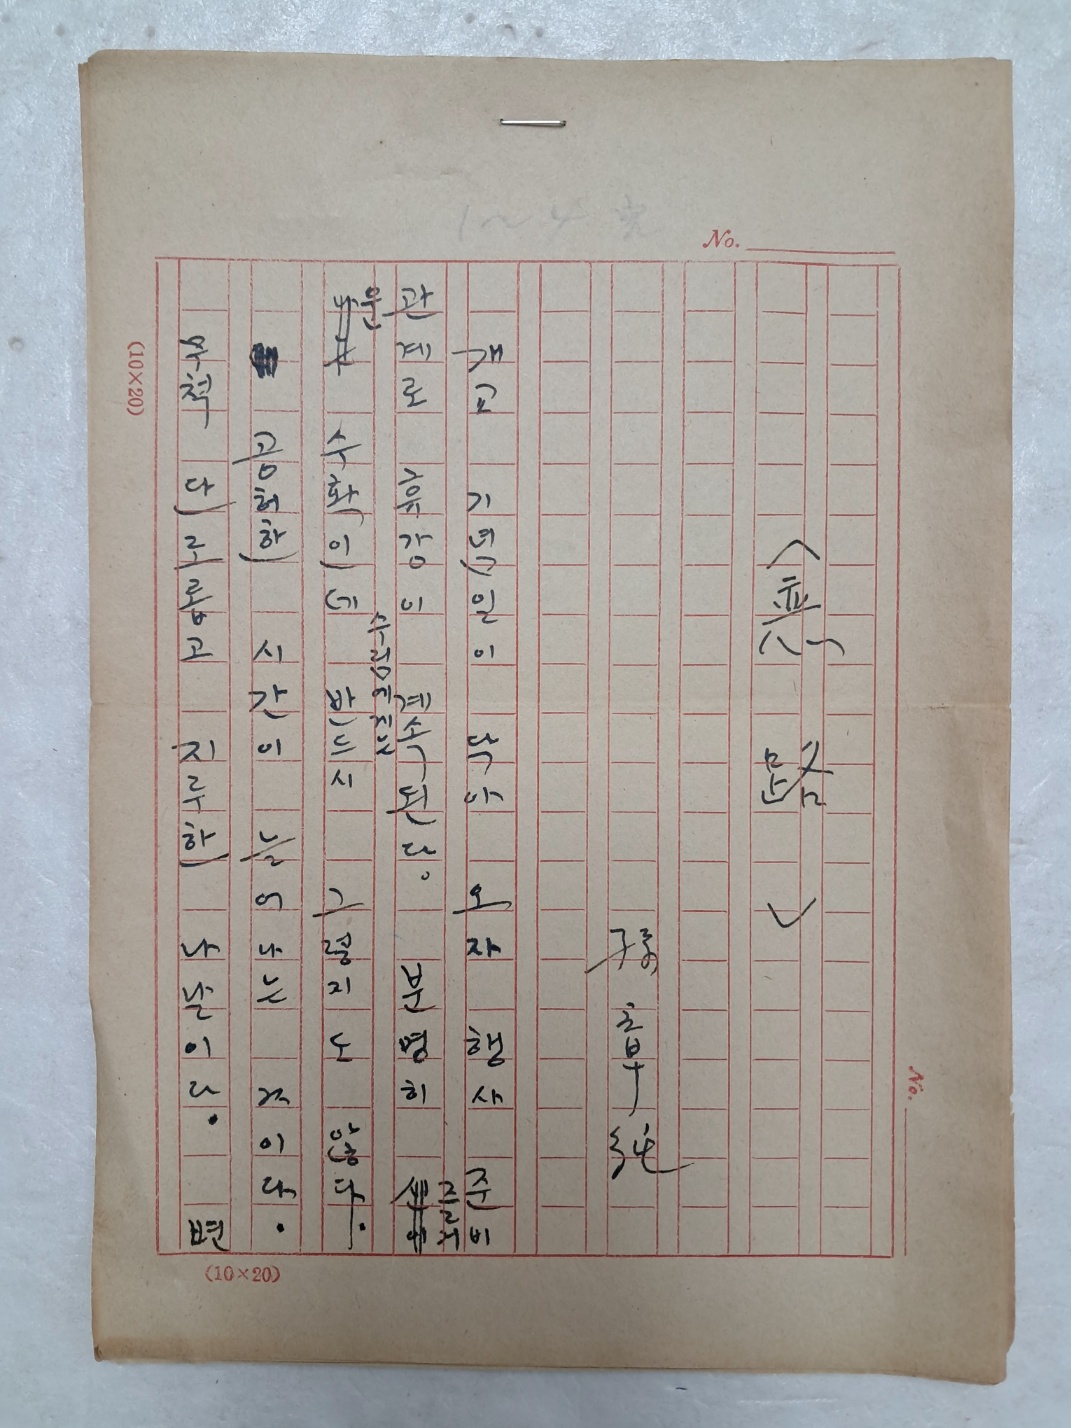 No.
〈悪路〉
孫章純
개교 기념일이 닥아 오자 행사 준비
관계로 휴강이 계속된다. 분명히 즐거
운 수확인데 반드시 그렇지도 않다.
공허한 시간이 늘어나는 것이다.
무척 단조롭고 지루한 나날이다. 변
(10×20)
No.
(10×20)